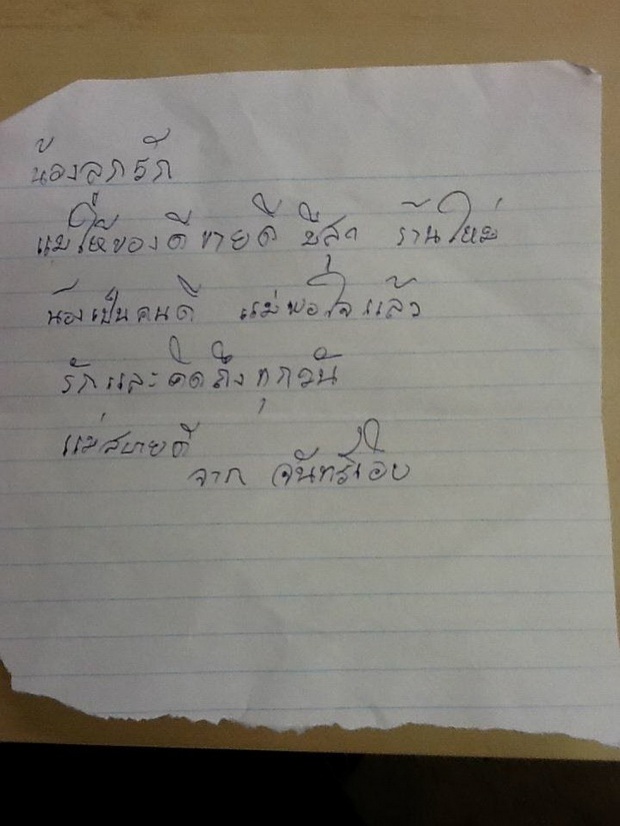 น้องลูกรัก
แม่ให้ของดี ขายดี ร้านใหม่
น้องเป็นคนดี แม่พอใจแล้ว
รักและคิดถึงทุกวัน
แม่สบายดี
จาก